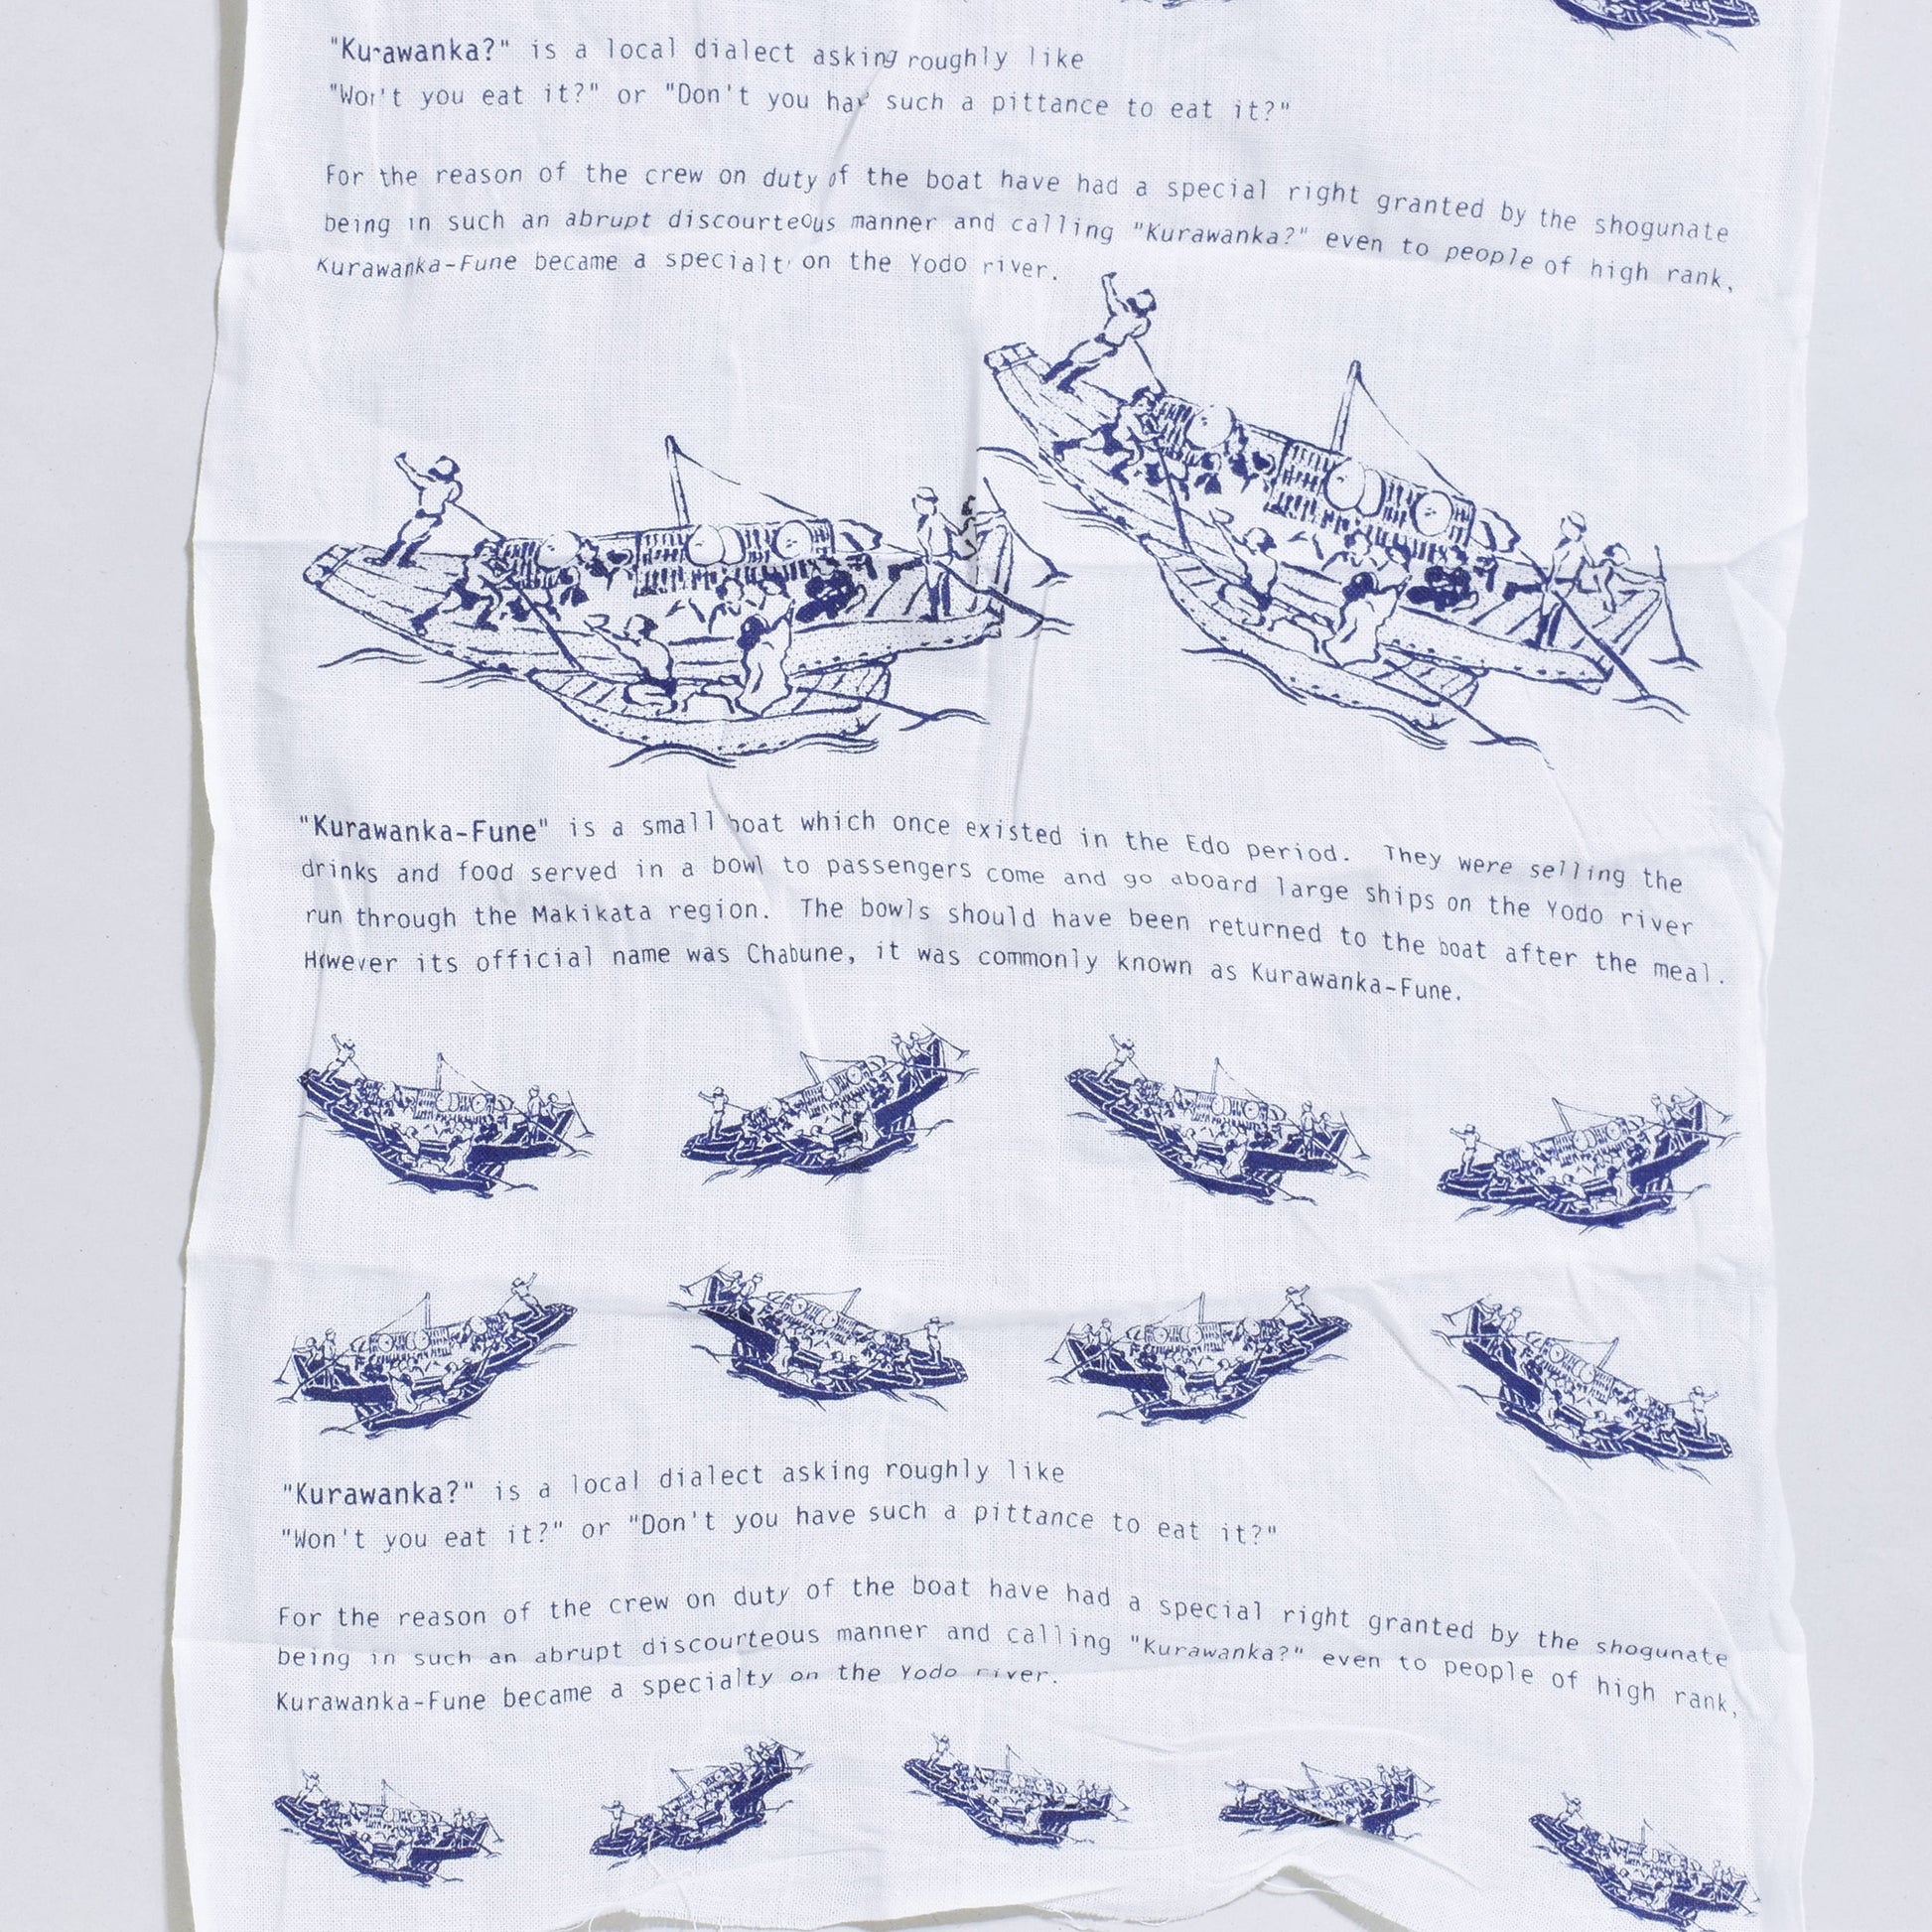 "Kurawanka?" is a local dialect asking roughly like
"Won't you eat it?" or "Don't you hav such a pittance to eat it?"
For the reason of the crew on duty of the boat have had a special right granted by the shogunate
being in such an abrupt discourteous manner and calling "Kurawanka?" even to people of high rank,
Kurawanka-Fune became a specialt on the Yodo river.
"Kurawanka-Fune" is a small boat which once existed in the Edo period. They were selling the
drinks and food served in a bowl to passengers come and go aboard large ships on the Yodo river
run through the Makikata region. The bowls should have been returned to the boat after the meal.
However its official name was Chabune, it was commonly known as Kurawanka-Fune.
"Kurawanka?" is a local dialect asking roughly like
"Won't you eat it?" or "Don't you have such a pittance to eat it?"
For the reason of the crew on duty of the boat have had a special right granted by the shogunate
being in such an abrupt discourteous manner and calling "Kurawanka?" even to people of high rank,
Kurawanka-Fune became a specialty on the Yodo river.